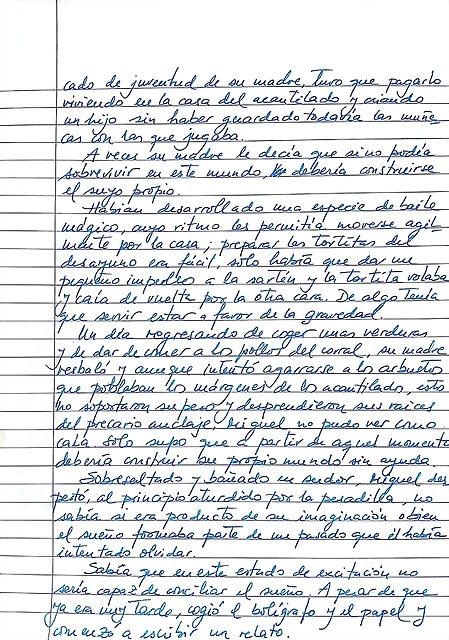 cado de juventud de su madre, tuvo que pagarlo
viviendo en la casa del acantilado y criando
un hijo sin haber guardado todavía las muñe
cas con las que jugaba.
A veces su madre le decía que si no podía
sobrevivir en este mundo, debería construirse
el suyo propio.
Habían desarrollado una especie de baile
mágico, cuyo ritmo les permitía moverse agil
mente por la casa; preparar las tortitas del
desayuno era fácil, sólo había que dar un
pequeño impulso a la sartén y la tortita volaba
y caía de vuelta por la otra cara. De algo tenía
que servir estar a favor de la gravedad.
Un día regresando de coger unas verduras
y de dar de comer a los pollos del corral, su madre
resbaló y aunque intentó agarrarse a los arbustos
que poblaban los márgenes de los acantilados, estos
no soportaron su peso y desprendieron sus raíces
del precario anclaje. Miguel no pudo ver como
caía solo supo que a partir de aquel momento
debería construir su propio mundo sin ayuda.
Sobresaltado y bañado en sudor, Miguel des
pertó, al principio aturdido por la pesadilla, no
sabía si era producto de su imaginación o bien
el sueño formaba parte de un pasado que él había
intentado olvidar.
Sabía que en este estado de excitación no
sería capaz de conciliar el sueño. A pesar de que
ya era muy tarde, cogió el bolígrafo y el papel y
comenzó a escribir un relato.